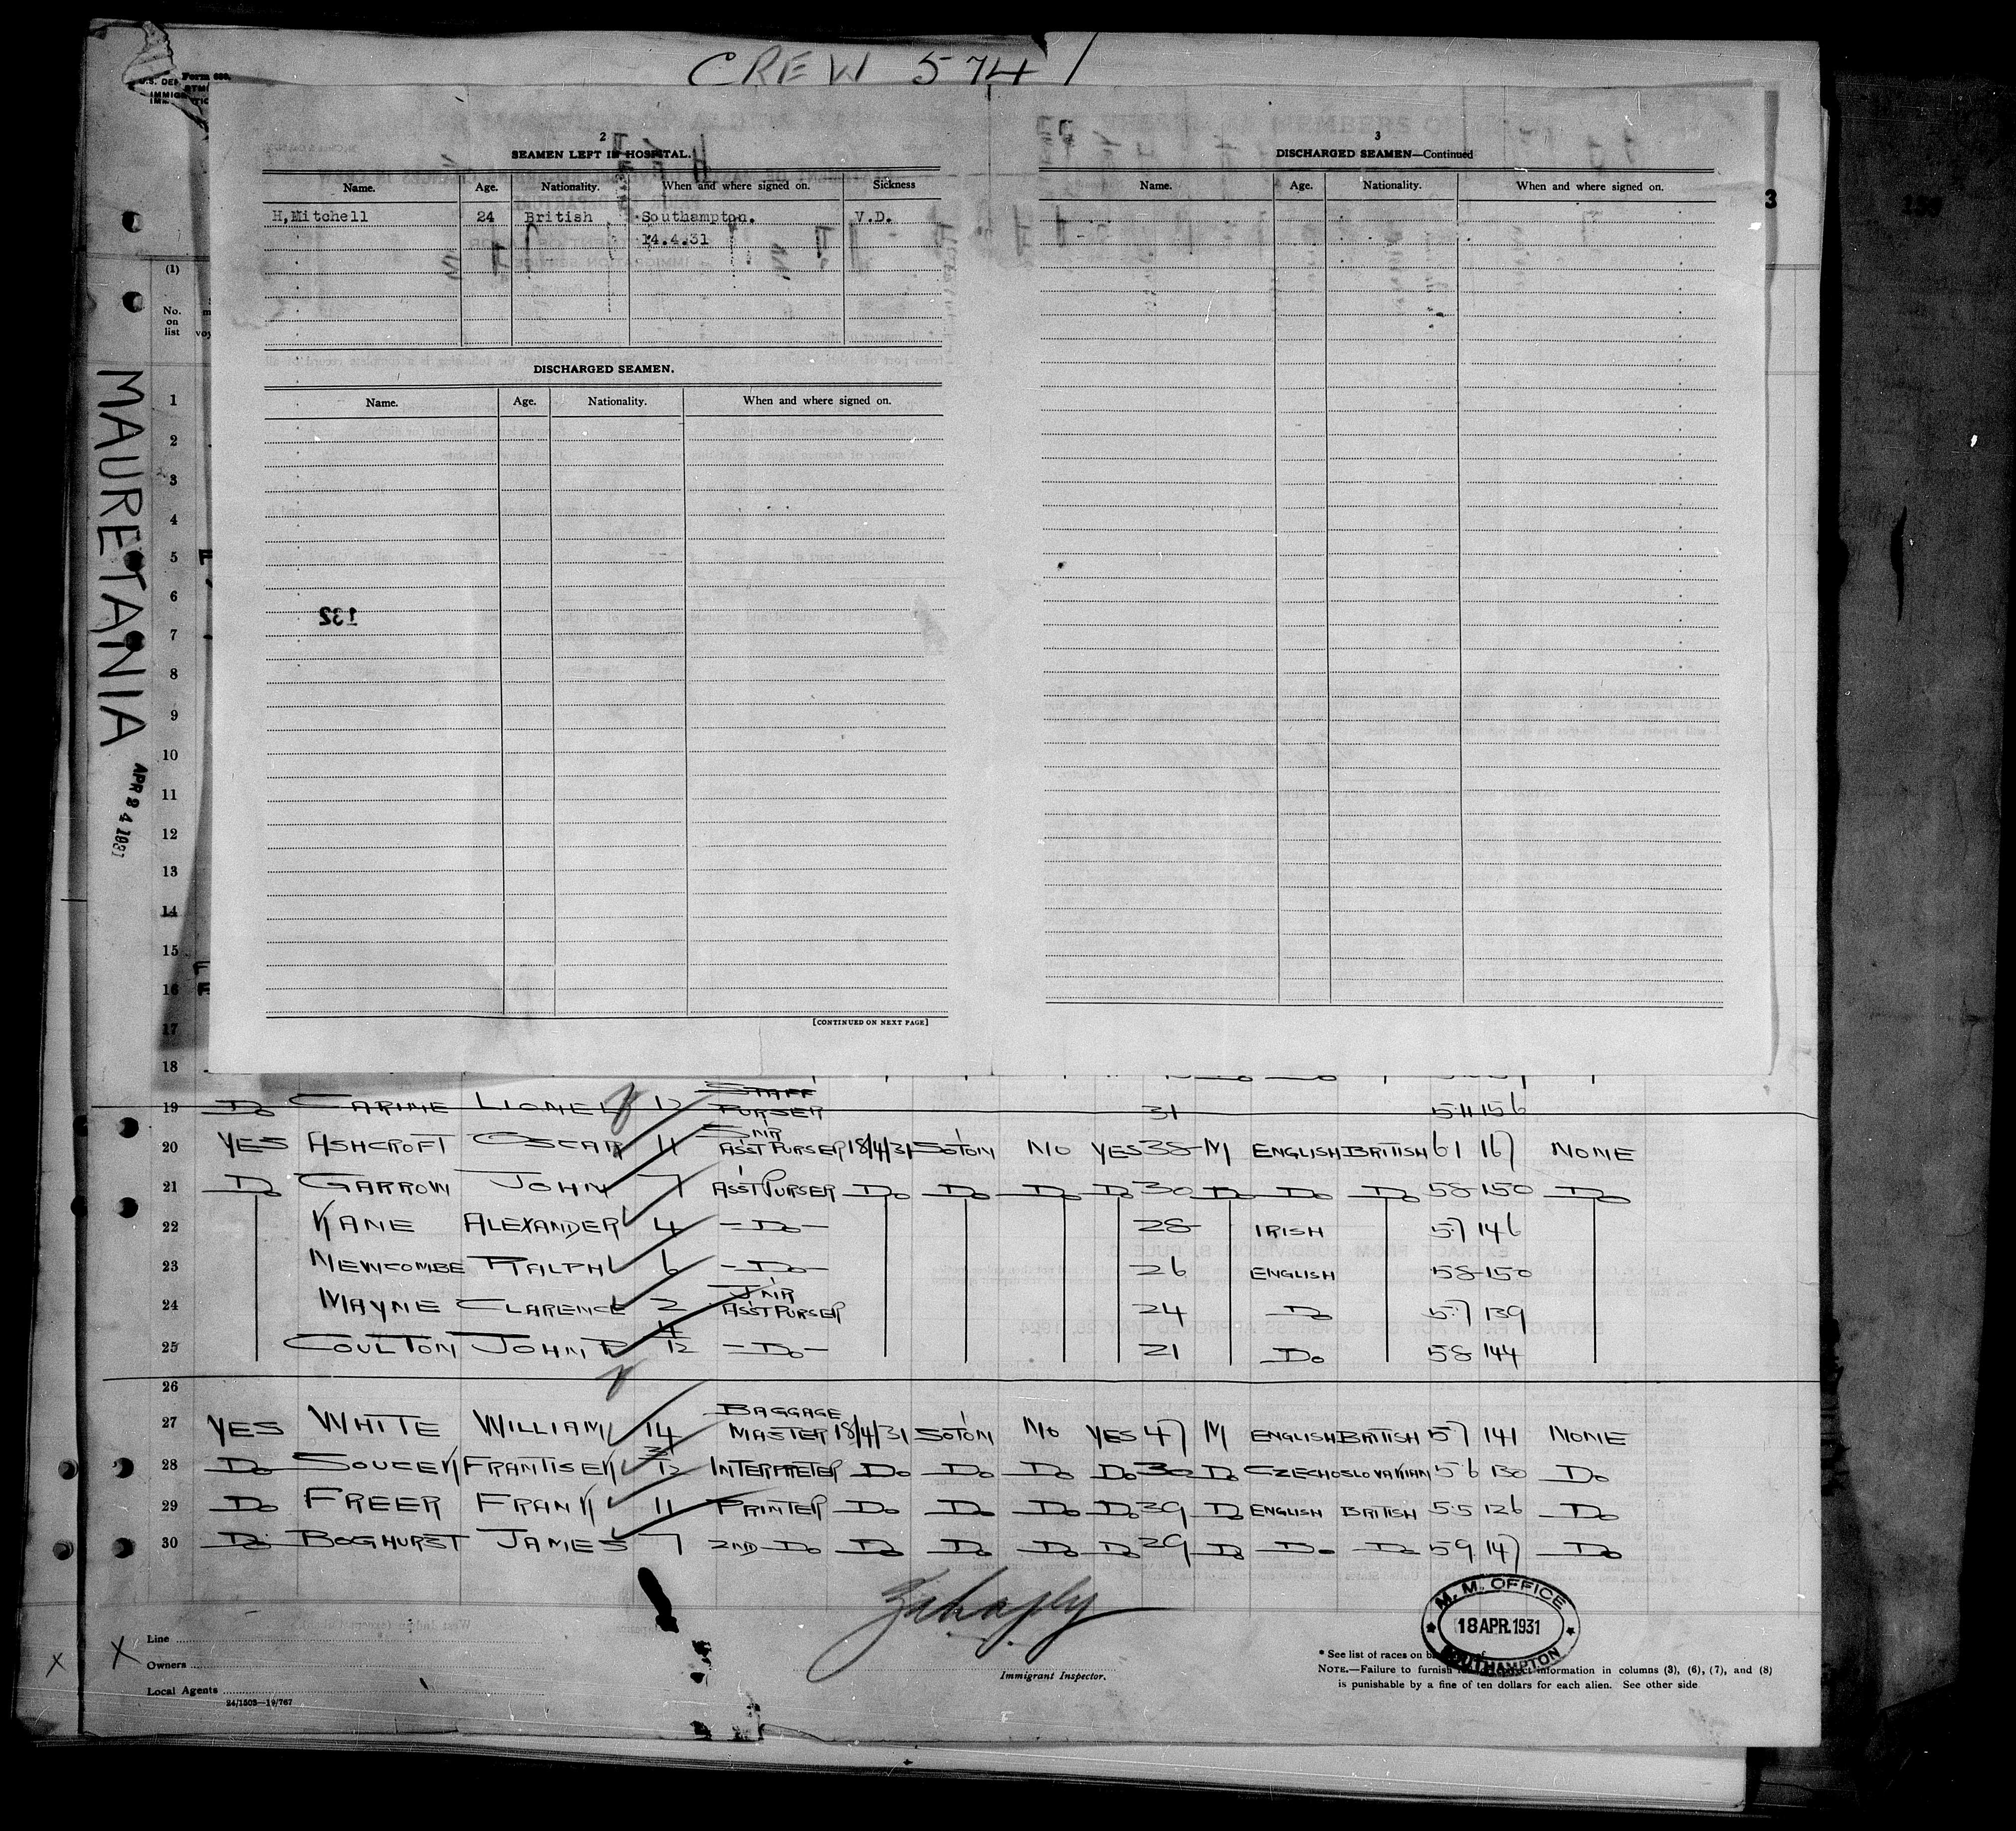 CREW 574
Form 680
U.S. DEP
MAURETANIA
APR 24 1931
(1)
No.
on
list
2
SEAMEN LEFT IN HOSPITAL.
Name. Age. Nationality. When and where signed on. Sickness
H,Mitchell 24 British Southampton. V.D.
14.4.31
DISCHARGED SEAMEN.
Name. Age. Nationality. When and where signed on.
132
[CONTINUED ON NEXT PAGE]
3
DISCHARGED SEAMEN—Continued
Name. Age. Nationality. When and where signed on.
3
1
2
3
4
5
6
7
8
9
10
11
12
13
14
15
16
17
18
19 Do CARINE LIONEL 12 STAFF PURSER 31 5·11 156
20 YES ASHCROFT OSCAR 11 SNR ASST PURSER 18/4/31 SOTON NO YES 38 M ENGLISH BRITISH 6 1 167 NONE
21 Do GARROW JOHN 7 ASST PURSER Do Do Do Do 30 Do Do Do 5 8 150 Do
22 KANE ALEXANDER 4 —Do— 28 IRISH 5·7 146
23 NEWCOMBE RALPH 6 —Do— 26 ENGLISH 5 8 150
24 MAYNE CLARENCE 2 JNR ASST PURSER 24 Do 5·7 139
25 COULTON JOHN R 4/12 —Do— 21 Do 5 8 144
26
27 YES WHITE WILLIAM 14 BAGGAGE MASTER 18/4/31 SOTON NO YES 47 M ENGLISH BRITISH 5 7 141 NONE
28 Do SOUCEK FRANTISEK 3/12 INTERPRETER Do Do Do Do 30 Do CZECHOSLOVAKIAN 5 6 130 Do
29 Do FREER FRANK 11 PRINTER Do Do Do Do 39 Do ENGLISH BRITISH 5·5 126 Do
30 Do BOGHURST JAMES 7 2ND Do Do Do Do Do 29 Do Do Do 5 9 147 Do
M. M. OFFICE
18 APR. 1931
SOUTHAMPTON
Line
Owners
Local Agents
24/1503—19/767
Immigrant Inspector.
* See list of races on
NOTE.—Failure to furnish information in columns (3), (6), (7), and (8)
is punishable by a fine of ten dollars for each alien. See other side